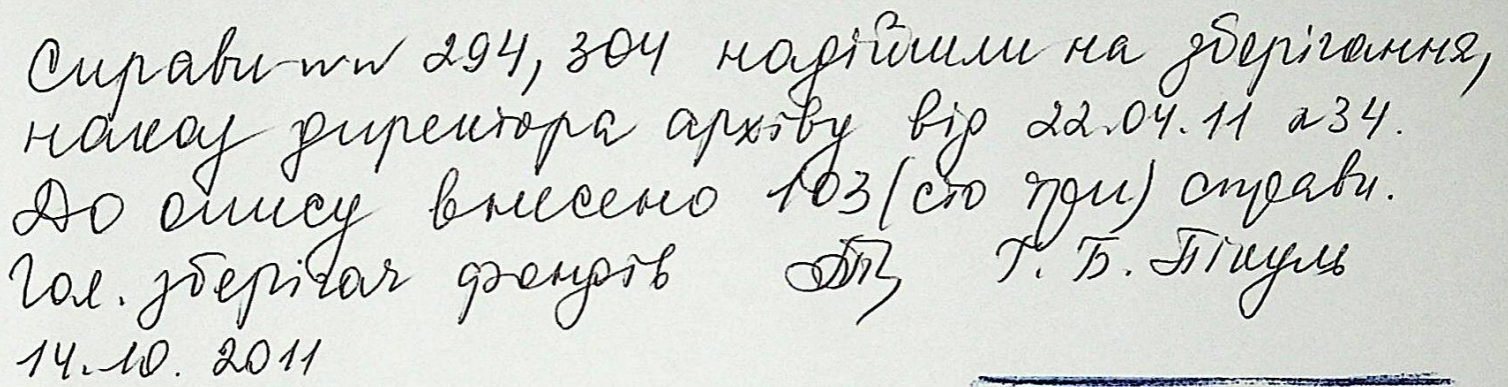 Справи №№ 294, 304 надійшли на зберігання,
наказ директора архіву від 22.04.11 №34.
До опису внесено 103 (сто три) справи.
Гол. зберігач фондів Г. Б. Пікуль
14.10. 2011